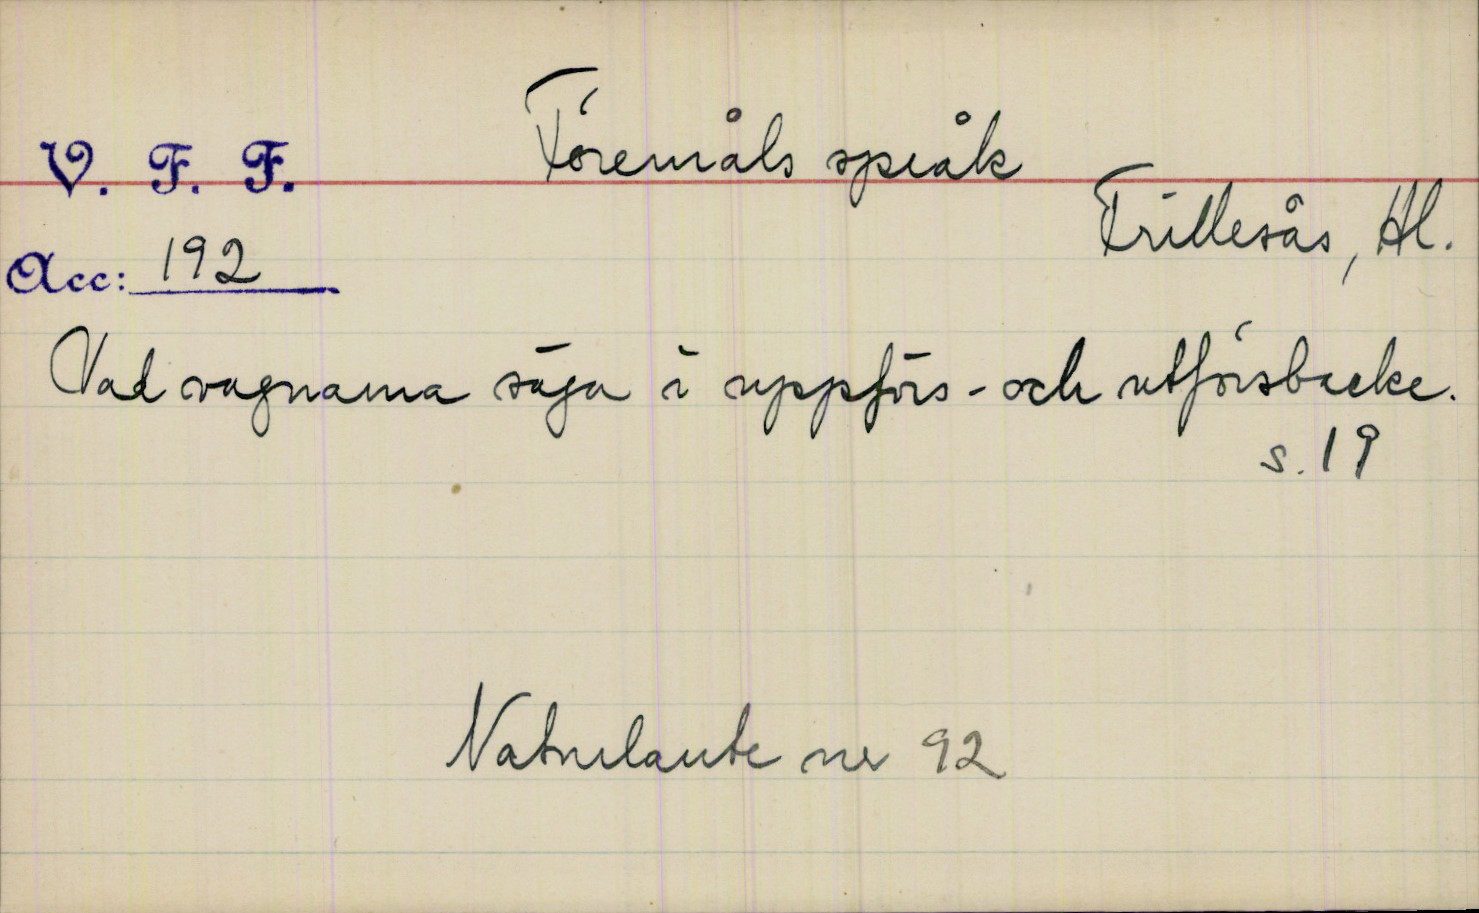 Föremåls språk
V. F. F.
Frillesås, Hl.
Acc: 192
Vad vagnarna säga i uppförs- och utförsbacke.
s. 19
Naturlaute nr 92